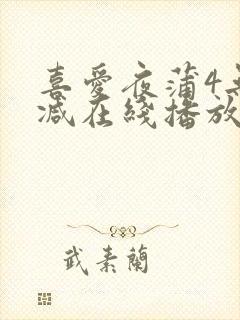 喜愛夜蒲4無
减在綫播放
武素蘭